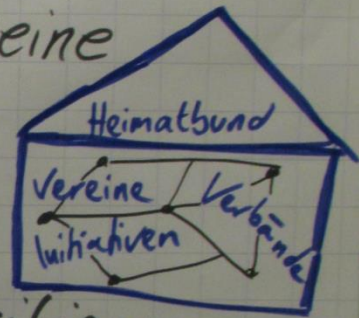 eine
Heimatbund
Vereine
Verbände
Initiativen